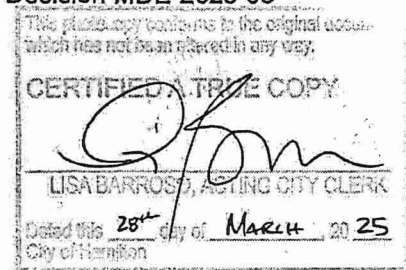 Decision MDE-2025-
This photocopy conforms to the original docu-
which has not been altered in any way.
CERTIFIED A TRUE COPY
LISA BARROSO, ACTING CITY CLERK
Dated this 28th day of MARCH, 20 25
City of Hamilton